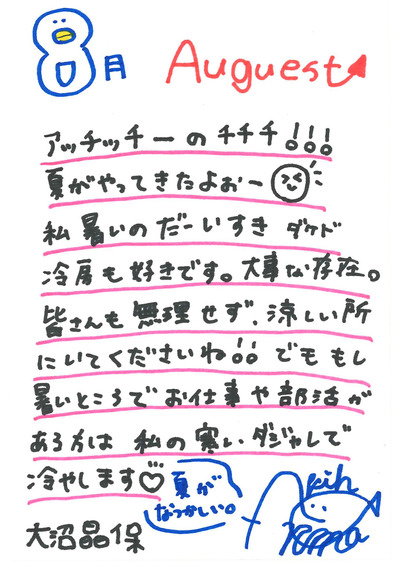 8月 Auguest
アッチッチーのチチチ!!!
夏がやってきたよおー
私暑いのだーいすき ダケド
冷房も好きです。大事な存在。
皆さんも無理せず、涼しい所
にいてくださいね!! でももし
暑いところでお仕事や部活が
ある方は 私の寒いダジャレで
冷やします♡
夏が
なつかしい。
大沼晶保